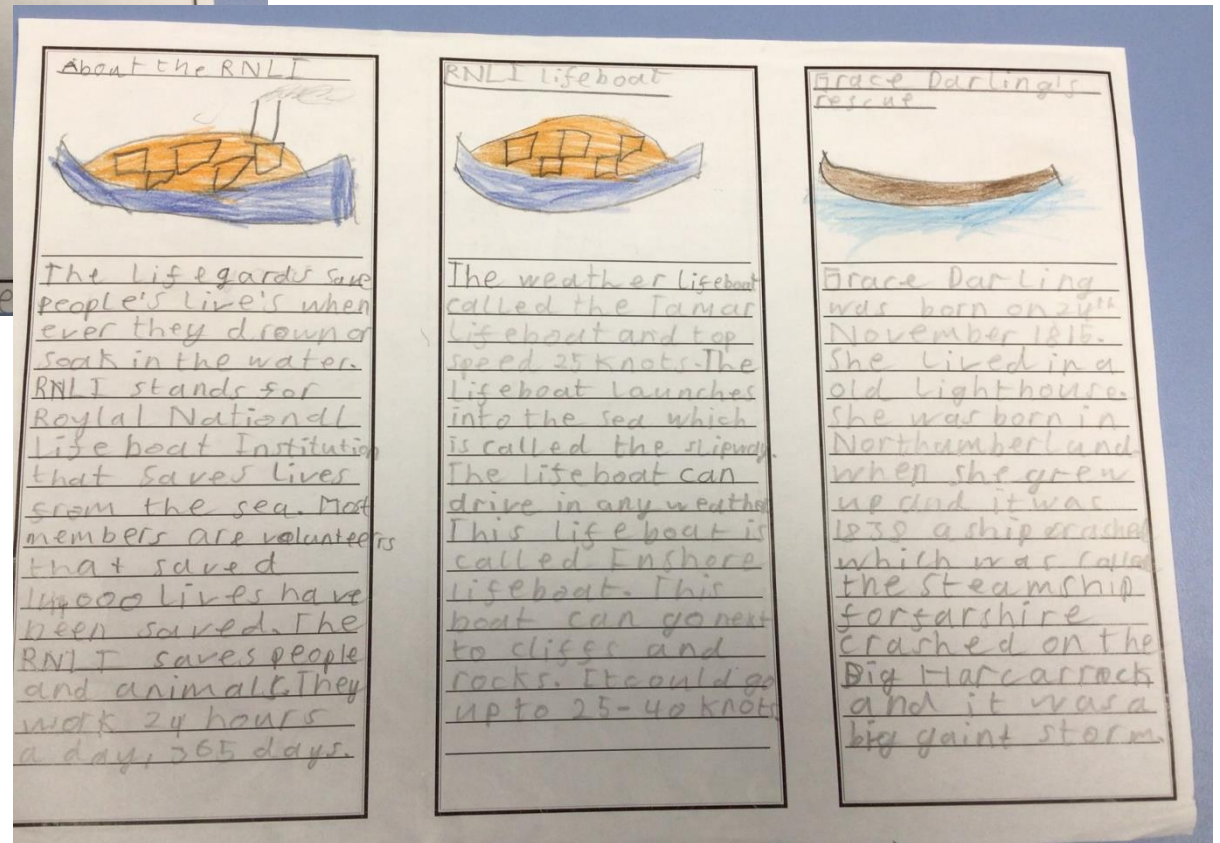 About the RNLI
The Lifegards save
people's live's when
ever they drown or
soak in the water.
RNLI stands for
Roylal National
Life boat Institution
that saves lives
from the sea. Most
members are volunteers
that saved
144000 lives have
been saved. The
RNLI saves people
and animals. They
work 24 hours
a day, 365 days.
RNLI lifeboat
The weather lifeboat
called the Tamar
lifeboat and top
speed 25 knots. The
lifeboat launches
into the sea which
is called the slipway.
The lifeboat can
drive in any weather
This lifeboat is
called Enshore
lifeboat. This
boat can go next
to cliffs and
rocks. It could go
up to 25-40 knots
Grace Darling's
rescue
Grace Darling
was born on 24th
November 1815.
She lived in a
old lighthouse.
She was born in
Northumberland.
when she grew
up and it was
1838 a ship crashed
which was called
the steamship
forfarshire
crashed on the
Big Harcarrock
and it was a
big gaint storm.